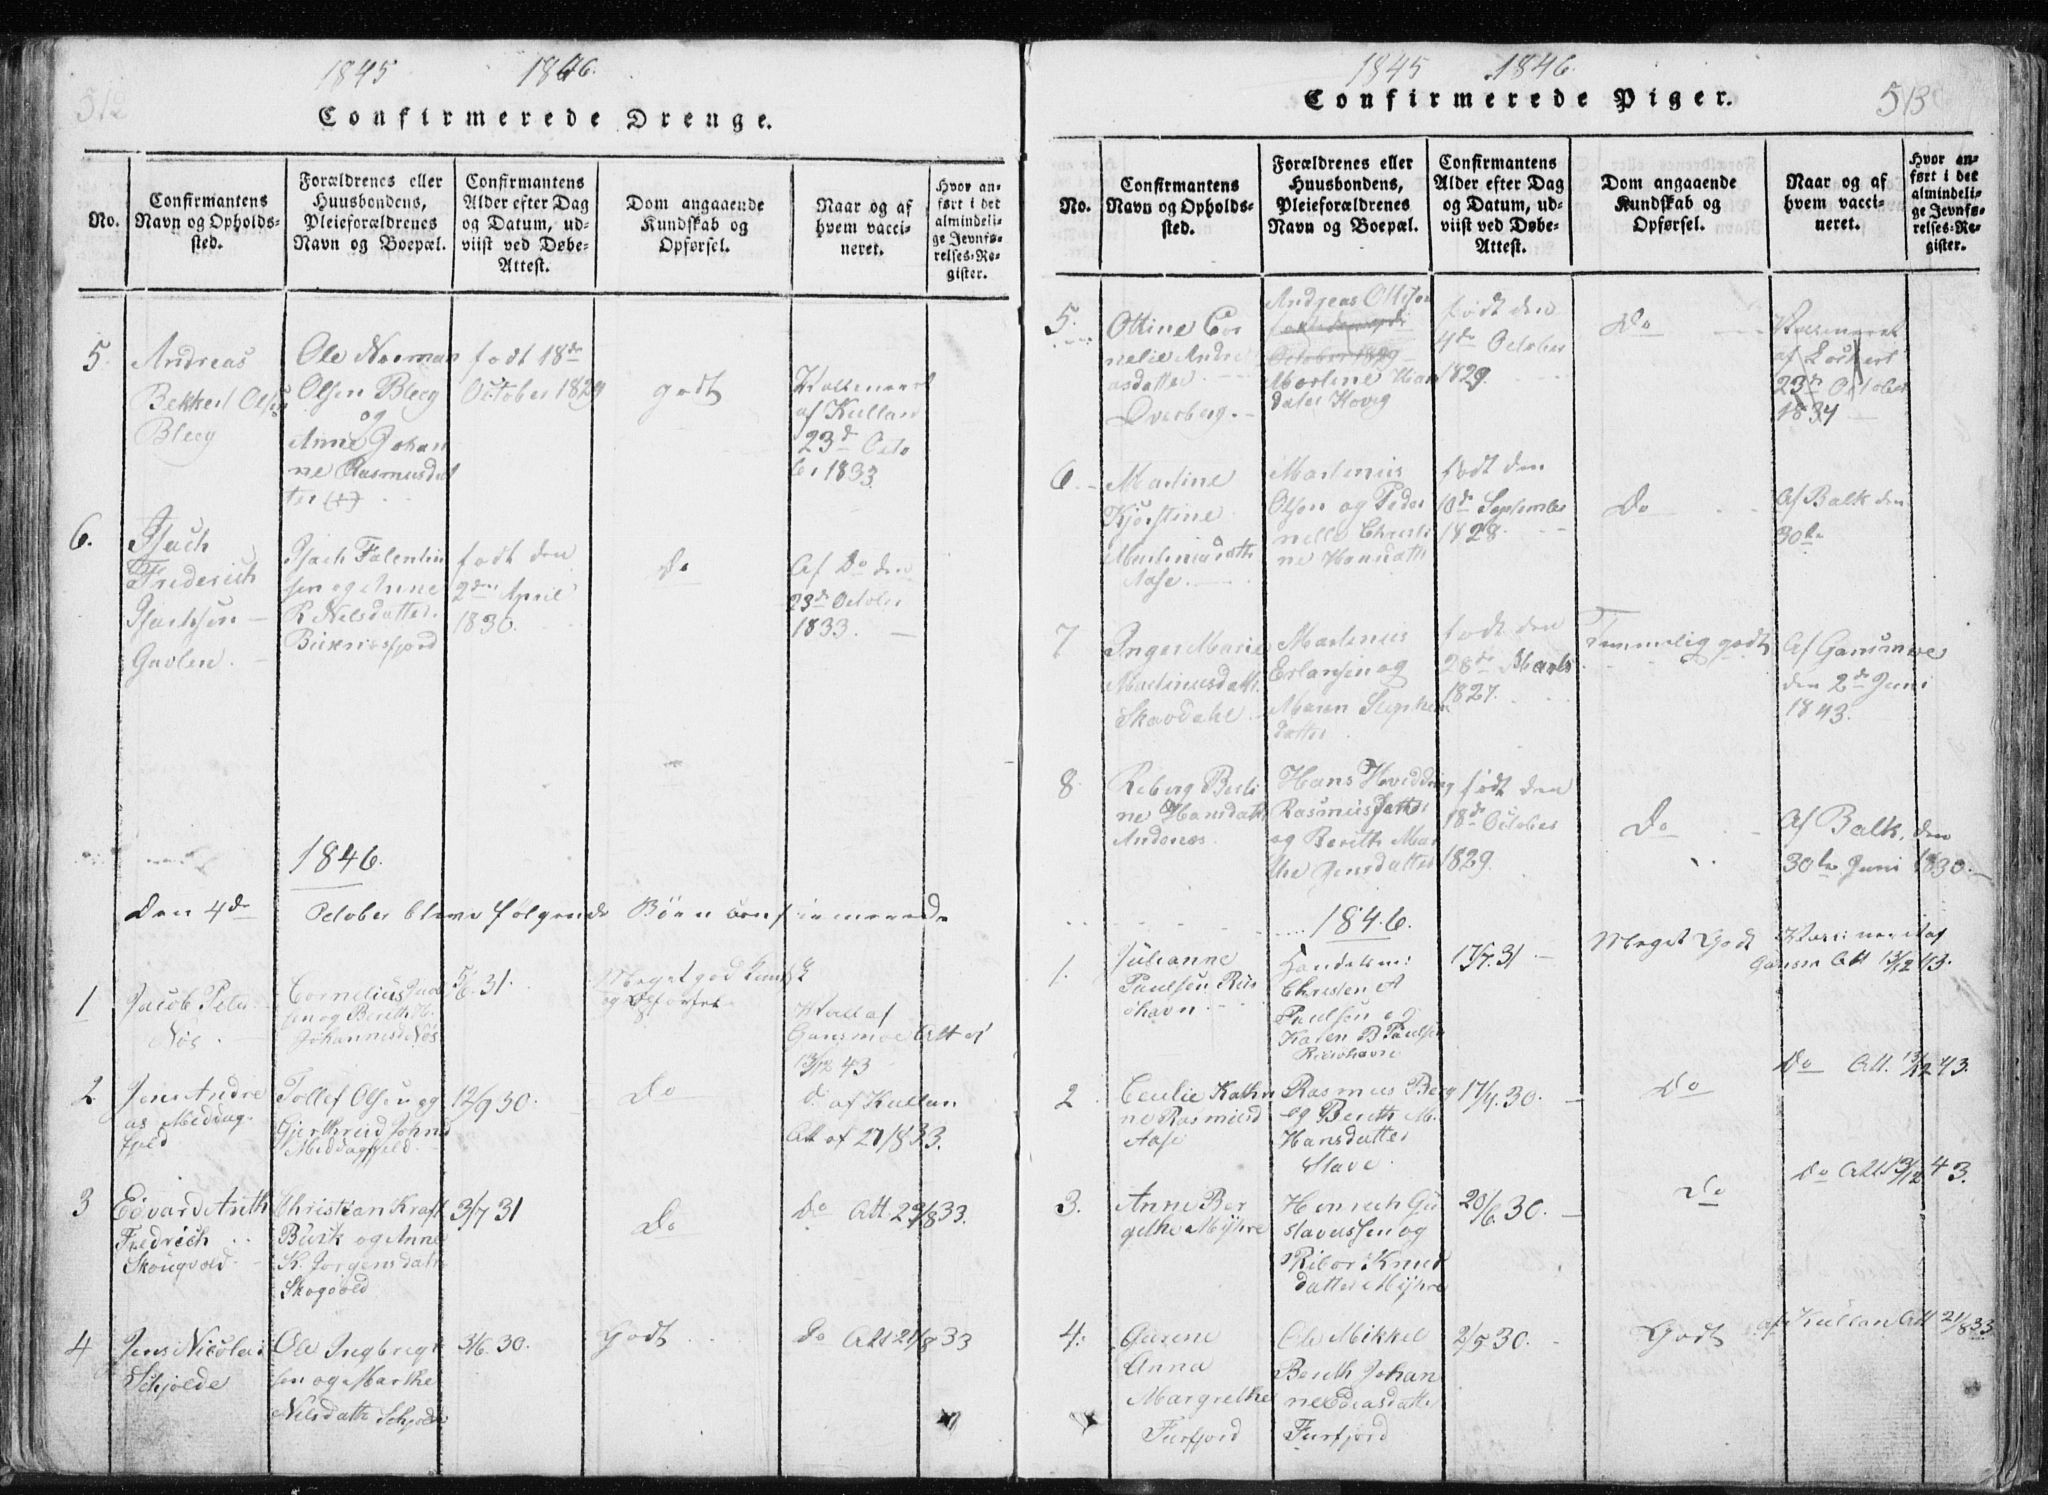 512
1845 1846.
Confirmerede Drenge.
No.
Confirmantens
Navn og Opholds-
sted.
Forældrenes eller
Huusbondens,
Pleieforældrenes
Navn og Boepæl.
Confirmantens
Alder efter Dag
og Datum, ud-
viist ved Døbe-
Attest.
Dom angaaende
Kundskab og
Opførsel.
Naar og af
hvem vacci-
neret.
Hvor an-
ført i det
almindeli-
ge Jevnfø-
relses-Re-
gister.
5.
Andreas
Bekked Olsen
Bleeg
Ole Norman
Olsen Bleeg
og
Anne Johan
ne Rasmusdat
ter
født 18de
October 1829
godt
af Kullan
23d Octo
be 1833
6.
Isach
Frederich
Isachsen
Gavlen.
Isach Falentin
sen og Anne
R Nelsdatter
Buknesfjord
født den
2den April
1830.
Do
Af Do den
23de October
1833.
1846.
Den 4de October bleve følgende Børn confirmerede
1
Jacob Peter
Nös
Cornelius
sen og Bereth H.
Johannesd Nös
5/6 31.
Meget god Kundsk
og Opførsel
Vall af
Gansmoe Att af
13/12 43
2
Jens Andre
as Meddag-
fjeld
Tollef Olsen og
Gjerthrud Johns
Middagfjeld
12/9 30.
Do
Do af Kullan
Att af 27/8 33.
3
Edvard Anth
Fredrich
Skougvold
Christian Kraft
Busk og Anne
K. Jørgensdatt
Skogvold
3/7 31
Do
Do Att 29/8 33.
4
Jens Nicolai
Schjolde
Ole Ingbrigt
sen og Marthe
Nilsdatt Schjolde
3/6. 30.
Godt
Do Att 21/8 33
1845 1846.
513
Confirmerede Piger.
No.
Confirmantens
Navn og Opholds-
sted.
Forældrenes eller
Huusbondens,
Pleieforældrenes
Navn og Boepæl.
Confirmantens
Alder efter Dag
og Datum, ud-
viist ved Døbe-
Attest.
Dom angaaende
Kundskab og
Opførsel.
Naar og af
hvem vacci-
neret.
Hvor an-
ført i det
almindeli-
ge Jevnfø-
relses-Re-
gister.
5.
Ottine Cor
nelie Andre
asdatter
Overberg.
Andreas Ottesen
October 1829
Martine Han
datter Hoveg
født den
4de October
1829.
Do
af Lockert
23de October
1834
6.
Martine
Kjerstine
Martiniusdatt
Aase.
Martinius
Olsen og Peder
nelle Christi
ne Hansdatt
født den
10de September
1828.
Do
Af Balk den
30te
7
Inger Marie
Martinusdatt.
Skavdahl
Martinus
Erlansen og
Maren Stephen
datter
født den
28de Marts
1827.
Temmelig godt
Af Gansmoe
den 2de Juni
1843.
8
Reberg Berli
ne Hansdatt
Andenes
Hans Hvedding
Rasmus
og Bereth Mar
the Jensdatter
født den
18de October
1829.
Do
Af Balk. den
30te Juni 1830.
1846.
1.
Julianne
Paulsen Riis
øhavn
Handelsm:
Christen A
Paulsen og
Karen B Paulsen
Risøhavn
17/7. 31
Meget Godt
Vaccineret af
Gansm Att 13/12 43.
2
Cecilie Kathri
ne Rasmusd
Aase
Rasmus Berg
og Bereth M.
Hansdatter
Stave.
17/4. 30.
Do
Do Att. 13/12 43.
3.
Anne Ber
gethe Myhre
Henrech Gu
stavessen og
Ribor Knud
datter Myhre
20/6. 30.
Do
Do Att 13/12 43.
4.
Gurene
Anna
Margrethe
Furfjord
Ole Mikkel
Bereth Johan
ne Eliasdatter
Furfjord
2/5 30.
Godt
af Kullan Att 21/8 33